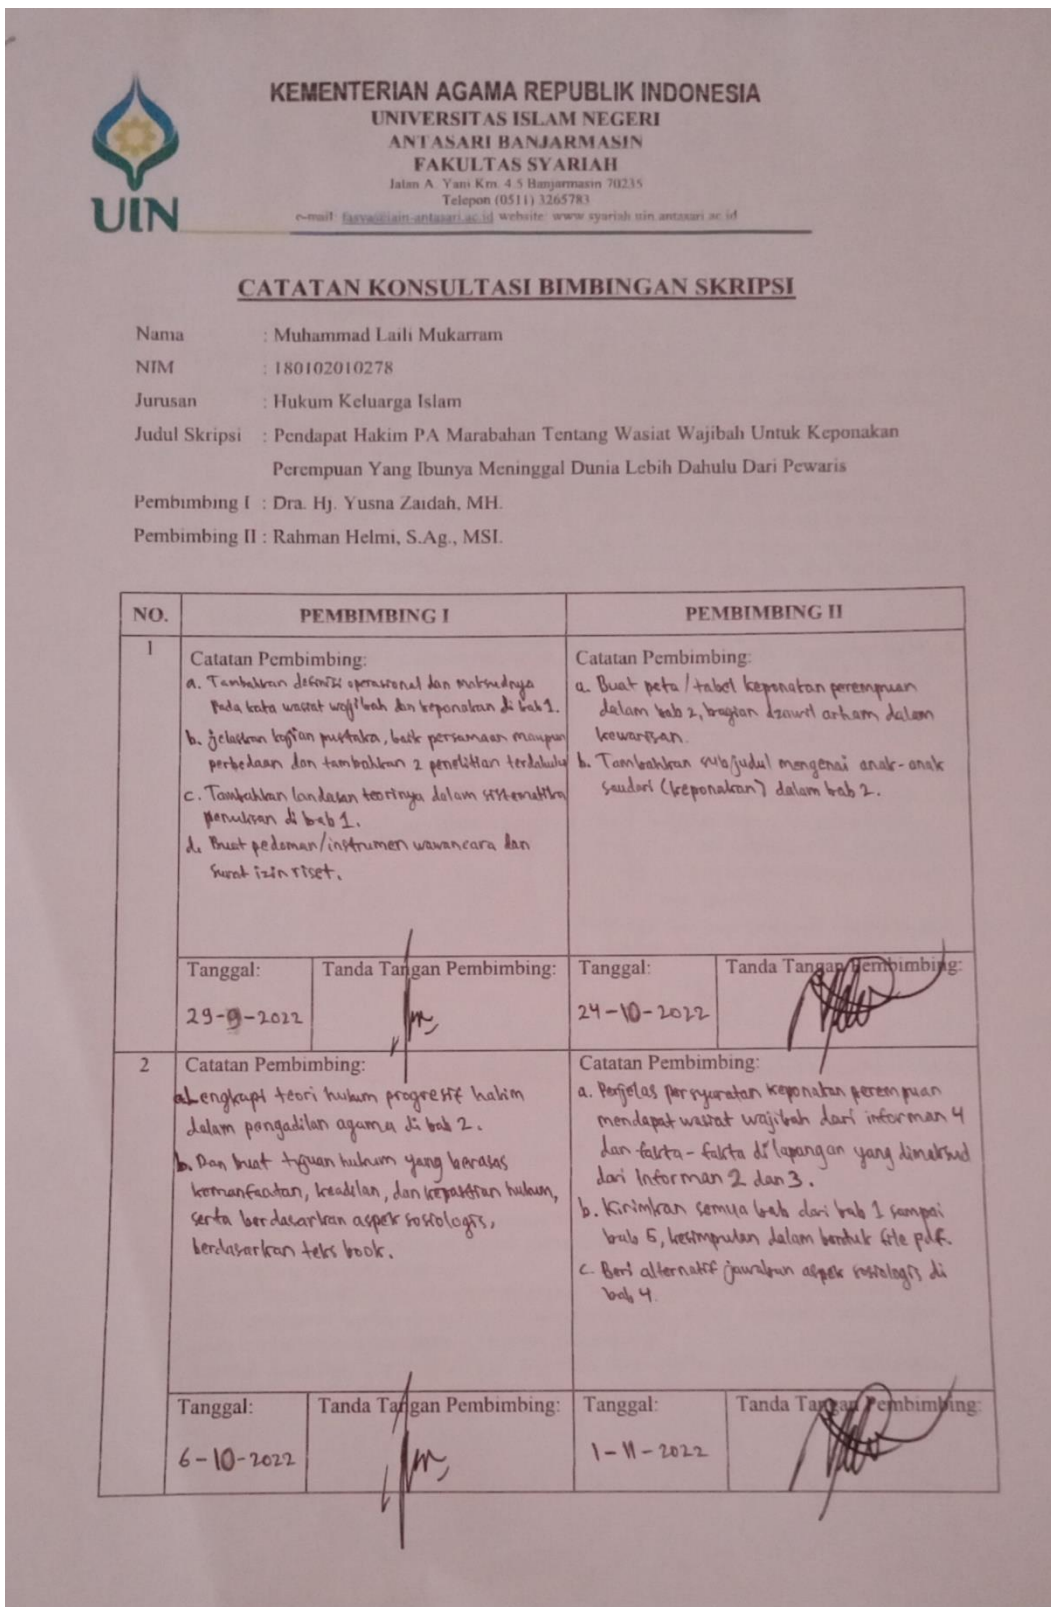 KEMENTERIAN AGAMA REPUBLIK INDONESIA
UNIVERSITAS ISLAM NEGERI
ANTASARI BANJARMASIN
FAKULTAS SYARIAH
Jalan A. Yani Km. 4.5 Banjarmasin 70235
Telepon (0511) 3265783
e-mail: fasya@iain-antasari.ac.id website: www.syariah.uin.antasari.ac.id
UIN
CATATAN KONSULTASI BIMBINGAN SKRIPSI
Nama : Muhammad Laili Mukarram
NIM : 180102010278
Jurusan : Hukum Keluarga Islam
Judul Skripsi : Pendapat Hakim PA Marabahan Tentang Wasiat Wajibah Untuk Keponakan
Perempuan Yang Ibunya Meninggal Dunia Lebih Dahulu Dari Pewaris
Pembimbing I : Dra. Hj. Yusna Zaidah, MH.
Pembimbing II : Rahman Helmi, S.Ag., MSI.
NO. PEMBIMBING I PEMBIMBING II
1
Catatan Pembimbing:
a. Tambahkan definisi operasional dan maksudnya
pada kata wasiat wajibah dan keponakan di bab 1.
b. Jelaskan kajian pustaka, baik persamaan maupun
perbedaan dan tambahkan 2 penelitian terdahulu
c. Tambahkan landasan teorinya dalam sistematika
penulisan di bab 1.
d. Buat pedoman/instrumen wawancara dan
surat izin riset.
Catatan Pembimbing:
a. Buat peta/tabel keponakan perempuan
dalam bab 2, bagian dzawil arham dalam
kewarisan.
b. Tambahkan subjudul mengenai anak-anak
saudari (keponakan) dalam bab 2.
Tanggal: Tanda Tangan Pembimbing: Tanggal: Tanda Tangan Pembimbing:
29-9-2022 24-10-2022
2
Catatan Pembimbing:
a. Lengkapi teori hukum progresif hakim
dalam pengadilan agama di bab 2.
b. Dan buat tujuan hukum yang berasas
kemanfaatan, keadilan, dan kepastian hukum,
serta berdasarkan aspek sosiologis,
berdasarkan teks book.
Catatan Pembimbing:
a. Perjelas persyaratan keponakan perempuan
mendapat wasiat wajibah dari informan 4
dan fakta-fakta di lapangan yang dimaksud
dari Informan 2 dan 3.
b. Kirimkan semua bab dari bab 1 sampai
bab 5, kesimpulan dalam bentuk file pdf.
c. Beri alternatif jawaban aspek sosiologis di
bab 4.
Tanggal: Tanda Tangan Pembimbing: Tanggal: Tanda Tangan Pembimbing:
6-10-2022 1-11-2022